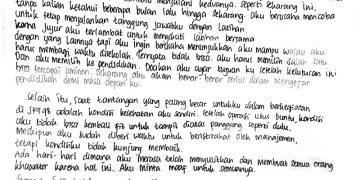 menjalani keduanya. seperti sekarang ini,
tanpa kalian ketahui beberapa bulan lalu hingga sekarang. aku berencana mencoba
untuk tetap menjalankan tanggung jawabku dengan latihan
karna jujur aku terlambat untuk mengikuti latihan bersama
dengan yang lainnya tapi aku ingin berusaha menunjukkan aku mampu walau aku
harus membagi waktu disekolah. Ternyata tidak bisa. aku harus memilih salah
Dan aku memilih ke pendidikan. Doakan aku agar tujuan ku setelah kelulusan ini
bisa tercapai aminn. sekarang aku akan benar-benar serius dalam mengejar
pendidikan demi masa depan ku.
Selain itu, saat tantangan yang paling besar untukku dalam berkegiatan
di JKT48 adalah kondisi kesehatan aku sendiri. Setelah operasi usus buntu, kondisi
aku tidak bisa kembali fit untuk tampil diatas panggung seperti dulu,
Meskipun aku sudah diberi waktu untuk beristirahat oleh manajemen,
tetapi kondisiku tidak kunjung membaik.
Ada hari-hari dimana aku merasa telah menyusahkan dan membuat semua orang
khawatir karena hal ini. Aku minta maaf untuk semuanya.